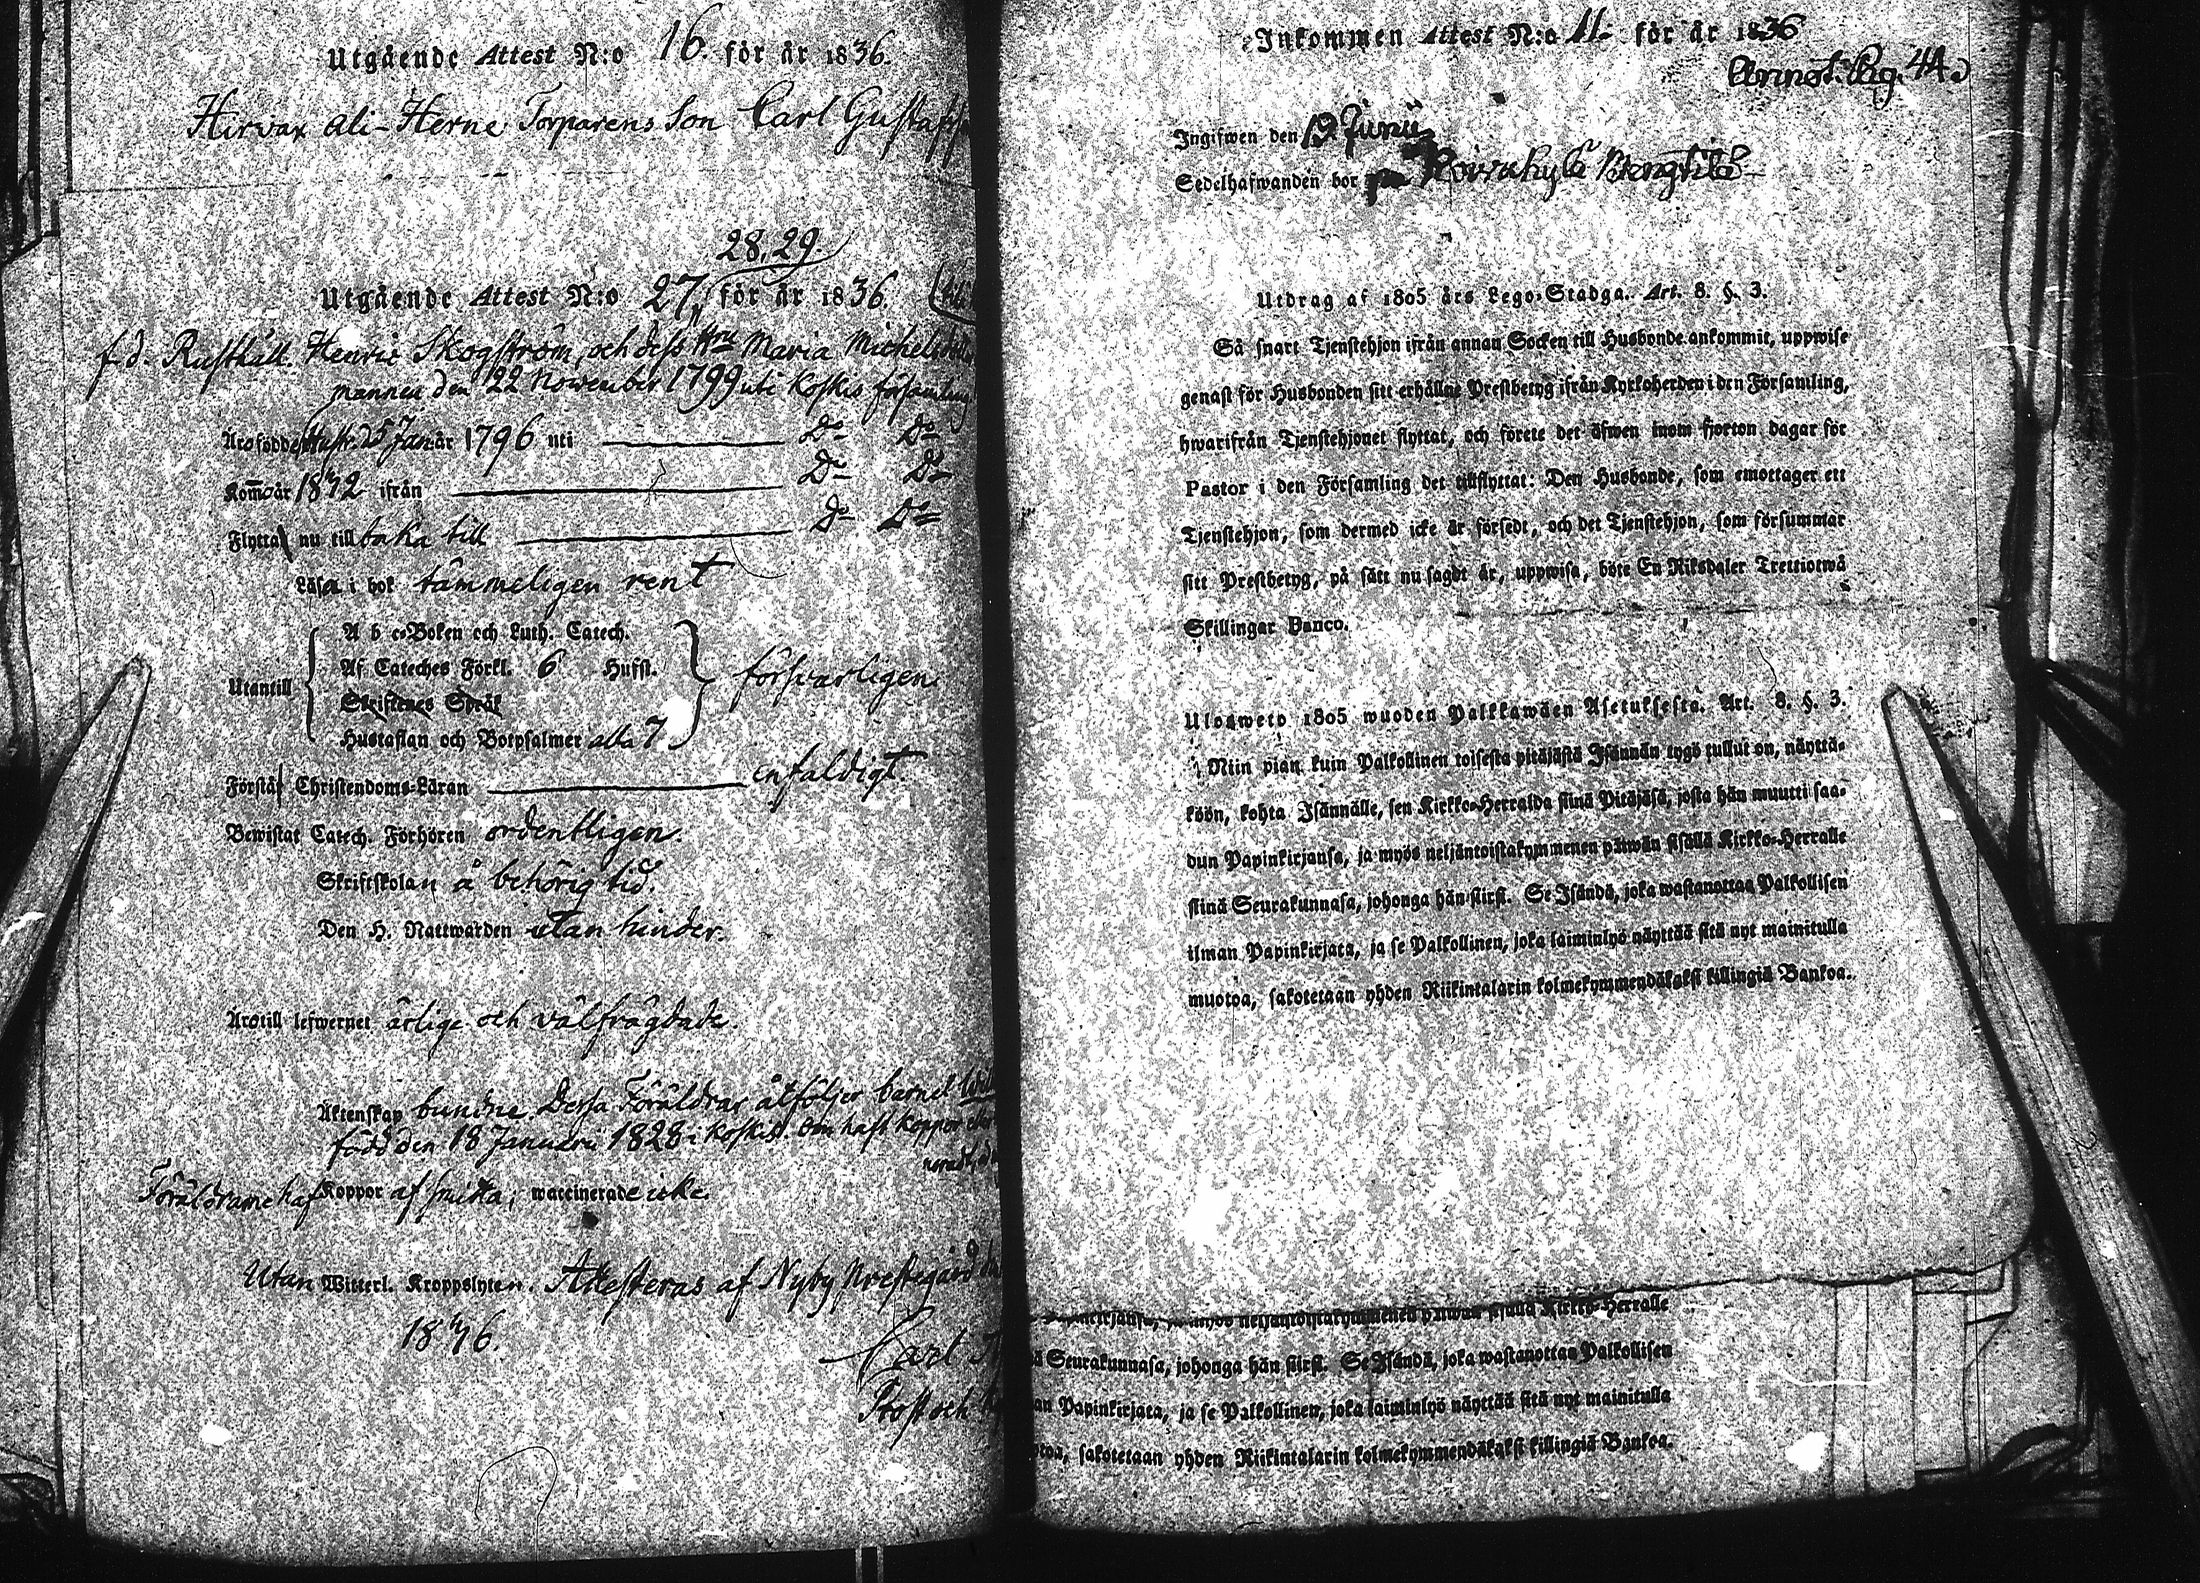 Utgående Attest N:o 16. för år 1836.
Hirvax Ali-Herne Torparens Son Carl Gustafss
28. 29.
Utgående Attest N:o 27, för år 1836.
f. d. Rusthåll. Henric Skogström, och dess Hru Maria Michelsd
mannen den 22 November 1799 uti Koskis församling
Äro födde, Hustr. d 5 Jan: år 1796 uti Do Do
Kom̄o år 1832 ifrån Do Do
Flytta nu tillbaka till Do Do
Läsa i bok tämmeligen rent
A b c-Boken och Luth. Catech.
Af Cateches Förkl. 6 Hufst.
Utantill försvarligen.
Skriftenes Språk
Hustaflan och Botpsalmer alla 7
Förstå Christendoms-Läran enfaldigt.
Bewistat Catech. Förhören ordentligen.
Skriftskolan å behörig tid.
Den H. Nattwarden utan hinder.
Äro till lefwernet ärlige och välfrägdade.
Äktenskap bundne. Dessa Föräldrar åtföljer barnet
född den 18 Januari 1828 i Koskis. om haft koppor eller
Föräldrarne haf Koppor af smitta, waccinerade icke.
Utan Witterl. Kroppslyten. Attesteras af Nyby Prestegård d
1836.
Carl
Prost och
Inkommen Attest N:o 11. för år 1836
Annot. Pag. 44.
Ingifwen den 19 Junii
Sedelhafwanden bor på
Utdrag af 1805 års Lego-Stadga. Art. 8. §. 3.
Så snart Tjenstehjon ifrån annan Socken till Husbonde ankommit, uppwise
genast för Husbonden sitt erhållne Prestbetyg ifrån Kyrkoherden i den Församling,
hwarifrån Tjenstehjonet flyttat, och förete det äfwen inom fjorton dagar för
Pastor i den Församling det tillflyttat: Den Husbonde, som emottager ett
Tjenstehjon, som dermed icke är försedt, och det Tjenstehjon, som försummar
sitt Prestbetyg, på sätt nu sagdt är, uppwisa, böte En Riksdaler Trettiotwå
Skillingar Banco.
Uloswето 1805 wuoden Palkkawäen Asetuksesta. Art. 8. §. 3.
Niin pian kuin Palkollinen toisesta pitäjästä Isännän tygö tullut on, näyttä-
köön, kohta Isännälle, sen Kirkko-Herralda siinä Pitäjäsä, josta hän muutti saa-
dun Papinkirjansa, ja myös neljäntoistakymmenen päiwän sisällä Kirkko-Herralle
siinä Seurakunnasa, johonga hän siirsi. Se Isändä, joka wastanottaa Palkollisen
ilman Papinkirjata, ja se Palkollinen, joka laiminlyö näyttää sitä nyt mainitulla
muotoa, sakotetaan yhden Riikintalarin kolmekymmendäkaksi killingiä Bankoa.
neljäntoistakymmenen päiwän sisällä Kirkko-Herralle
ä Seurakunnasa, johonga hän siirsi. Se Isändä, joka wastanottaa Palkollisen
an Papinkirjata, ja se Palkollinen, joka laiminlyö näyttää sitä nyt mainitulla
otoa, sakotetaan yhden Riikintalarin kolmekymmendäkaksi killingiä Bankoa.